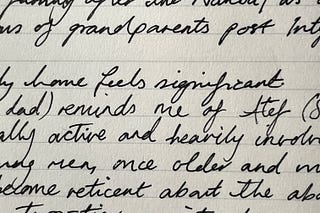 after the
ns of grandparents post Int
y home feels significant
dad) reminds me of Atef (S
ally active and heavily involv
ng men, once older and m
become reticent about the abo